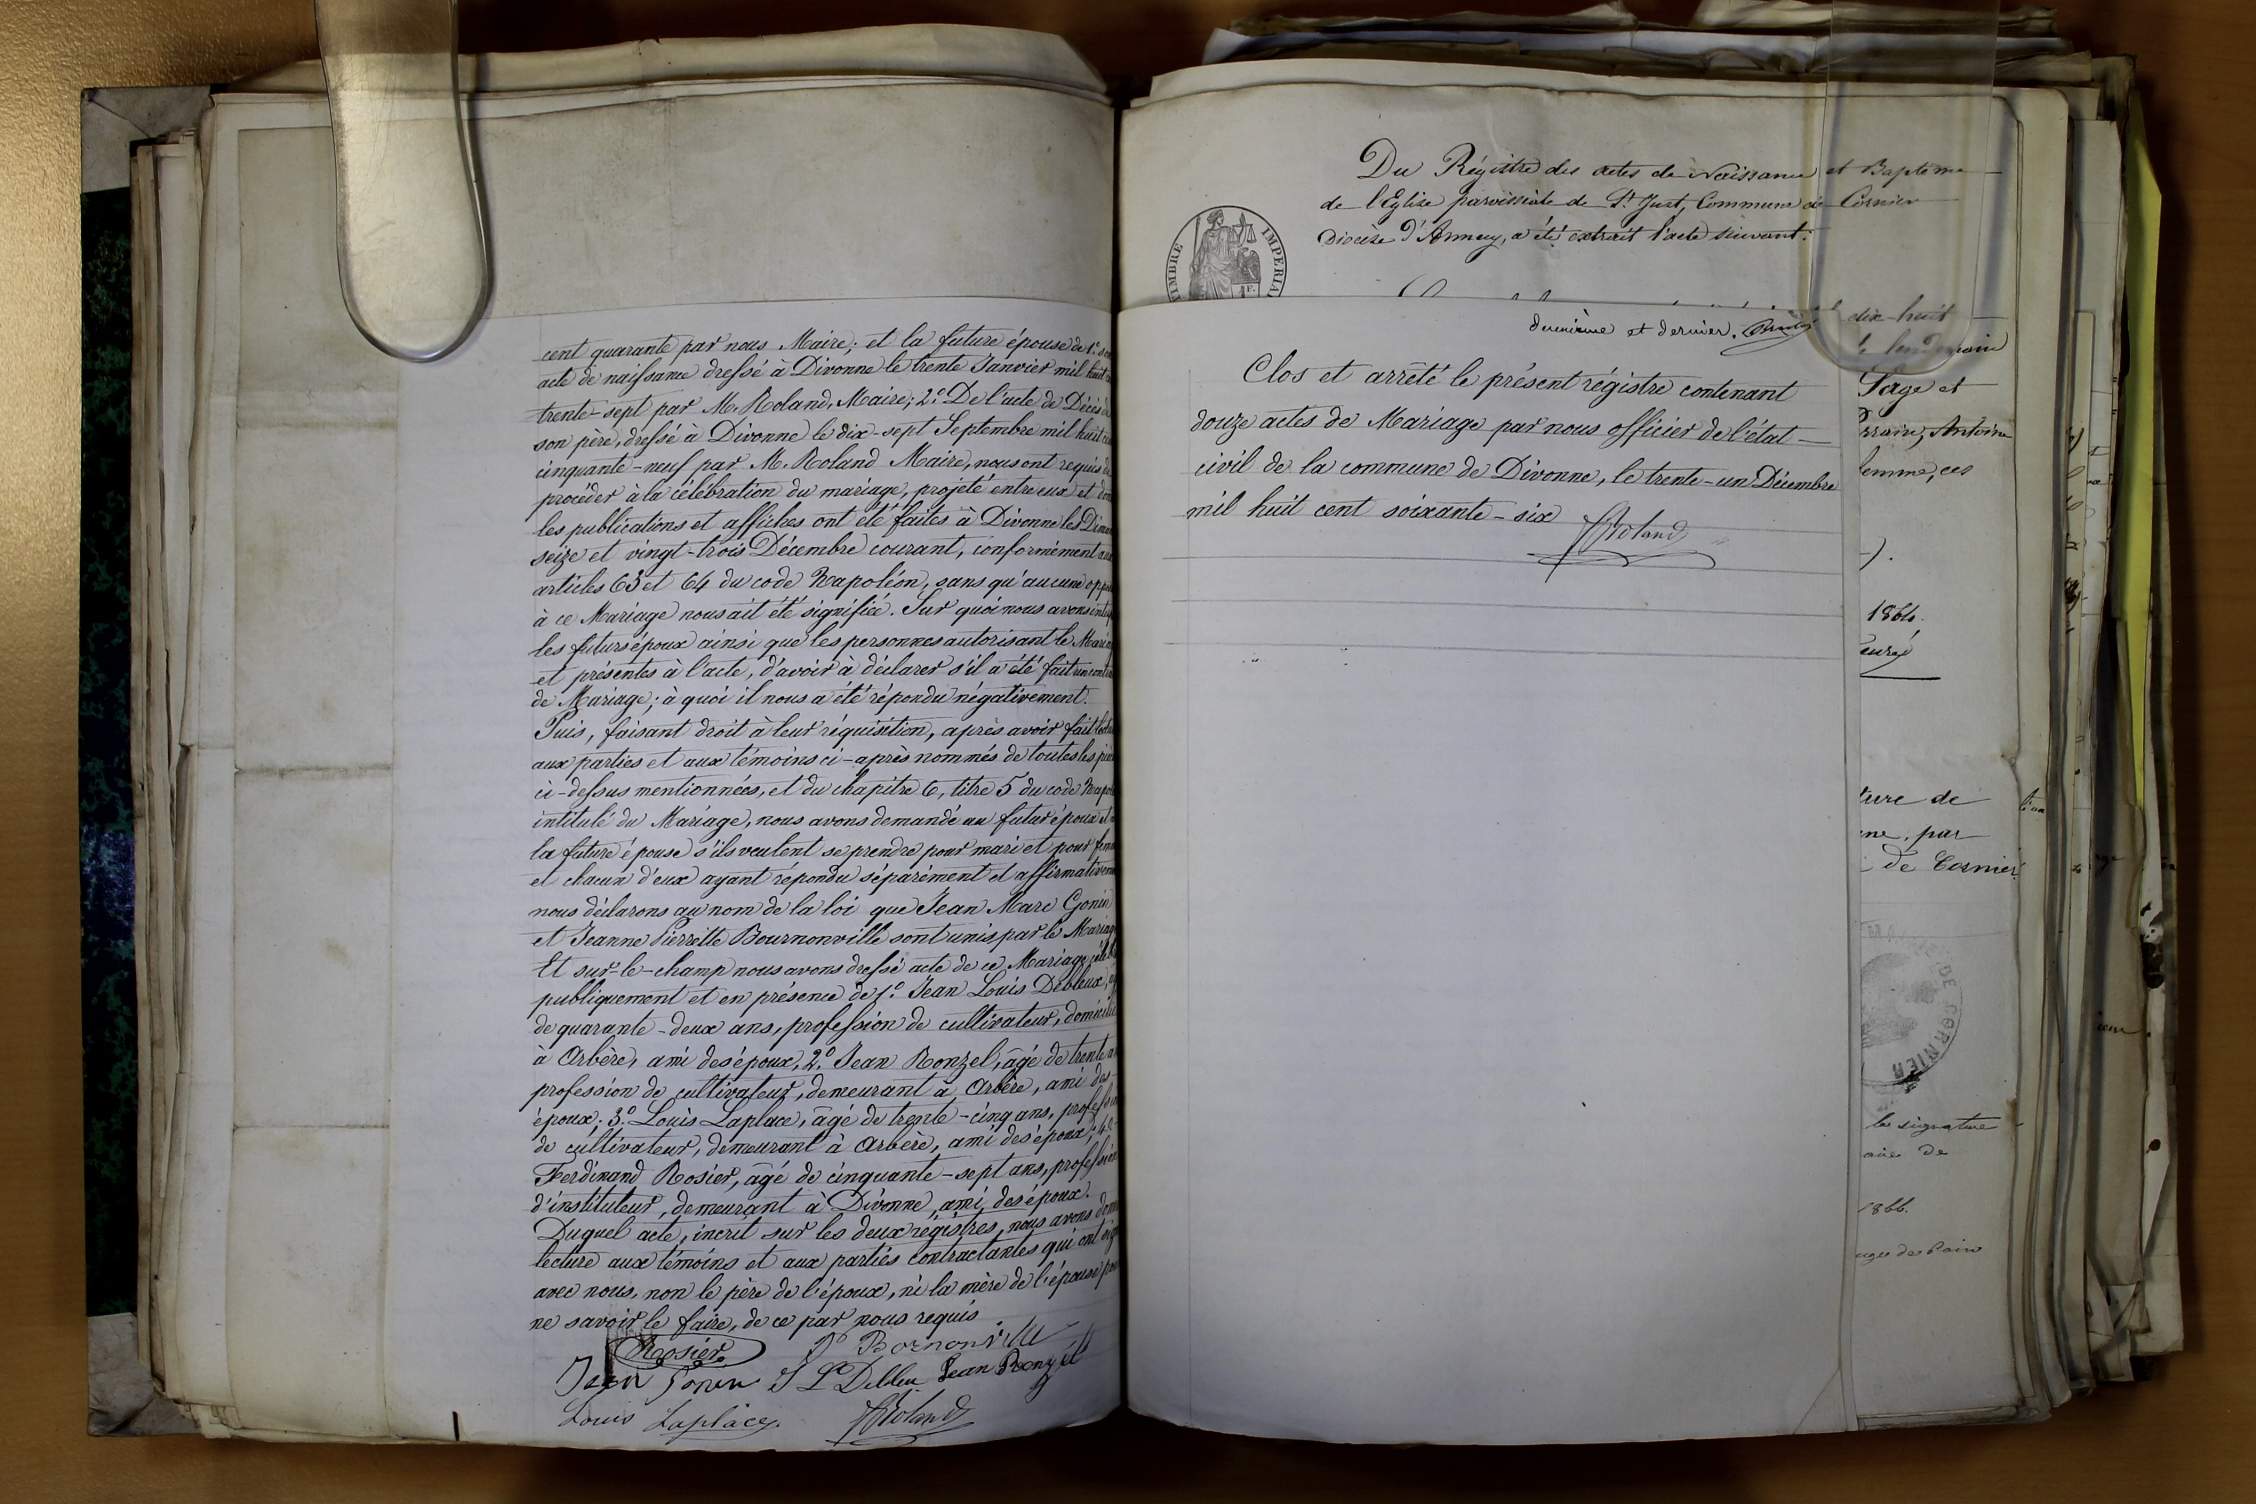 cent quarante par nous Maire; et la future épouse de 1.°
acte de naissance dressé à Divonne le trente Janvier mil huit
trente-sept par M. Roland, Maire; 2.° De l'acte de Décès
son père, dressé à Divonne le dix-sept Septembre mil huit
cinquante-neuf par M. Roland Maire, nous ont requis
procéder à la célébration du mariage, projeté entre eux et
les publications et affiches ont été faites à Divonne les
seize et vingt-trois Décembre courant, conformément
articles 63 et 64 du code Napoléon, sans qu'aucune
à ce Mariage nous ait été signifiée. Sur quoi nous avons
les futurs époux ainsi que les personnes autorisant le
et présentes à l'acte, d'avoir à déclarer s'il a été fait un
de Mariage; à quoi il nous a été répondu négativement.
Puis, faisant droit à leur réquisition, après avoir fait
aux parties et aux témoins ci-après nommés de toutes les
ci-dessus mentionnées, et du chapitre 6, titre 5 du code
intitulé du Mariage, nous avons demandé au futur époux et
la future épouse s'ils veulent se prendre pour mari et pour
et chacun d'eux ayant répondu séparément et
nous déclarons au nom de la loi que Jean Marc Gonin
et Jeanne Pierrette Bournonville sont unis par le
Et sur-le-champ nous avons dressé acte de ce Mariage
publiquement et en présence de 1.° Jean Louis Debleux,
de quarante-deux ans, profession de cultivateur,
à Arbère, ami des époux, 2.° Jean Ronzel, âgé de trente
profession de cultivateur, demeurant à Arbère, ami des
époux; 3.° Louis Laplace, âgé de trente-cinq ans,
de cultivateur, demeurant à Arbère, ami des époux;
Ferdinand Rosier, âgé de cinquante-sept ans,
d'instituteur, demeurant à Divonne, ami des époux.
Duquel acte, incrit sur les deux régistres, nous avons
lecture aux témoins et aux parties contractantes qui ont
avec nous, non le père de l'époux, ni la mère de l'épouse
ne savoir le faire, de ce par nous requis
Rosier Bornonville
Jean Gonin J L Debleu Jean Ronzel
Louis Laplace. Roland
Du Régistre des actes de Naissance et Baptême
de l'Eglise paroissiale de St Just, Commune de Cornier
Diocèse d'Annecy, a été extrait l'acte suivant:
TIMBRE IMPERIAL
1 F.
deuxième et dernier.
Clos et arrêté le présent régistre contenant
douze actes de Mariage par nous officier de l'état
civil de la commune de Divonne, le trente-un Décembre
mil huit cent soixante-six Roland
dix-huit
Sage et
Antoine
femme, ces
1866.
curé
ture de
par
de Cornier
DE CORNIER
la signature
de
1866.